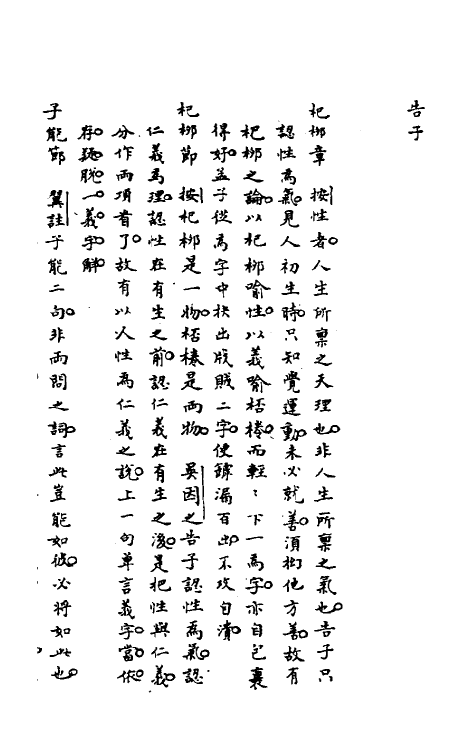 告子
杞柳章　按性者人生所稟之天理也非人生所稟之氣也告子只
認性為氣見人初生時只知覺運動未必就善須㨂他方善故有
杞柳之論以杞柳喻性以義喻桮棬而輕〻下一為字亦自包裹
得好孟子從為字中抉出戕賊二字便罅漏百出不攻自潰
杞柳節　按杞柳是一物桮棬是兩物　吳因之告子認性為氣認
仁義為理認性在有生之前認仁義在有生之後是把性與仁義
分作兩項看了故有以人性為仁義之說上一句單言義字當依
存疑脫一義字解
子能節　翼註子能二句非兩問之詞言此豈能如彼必將如此也